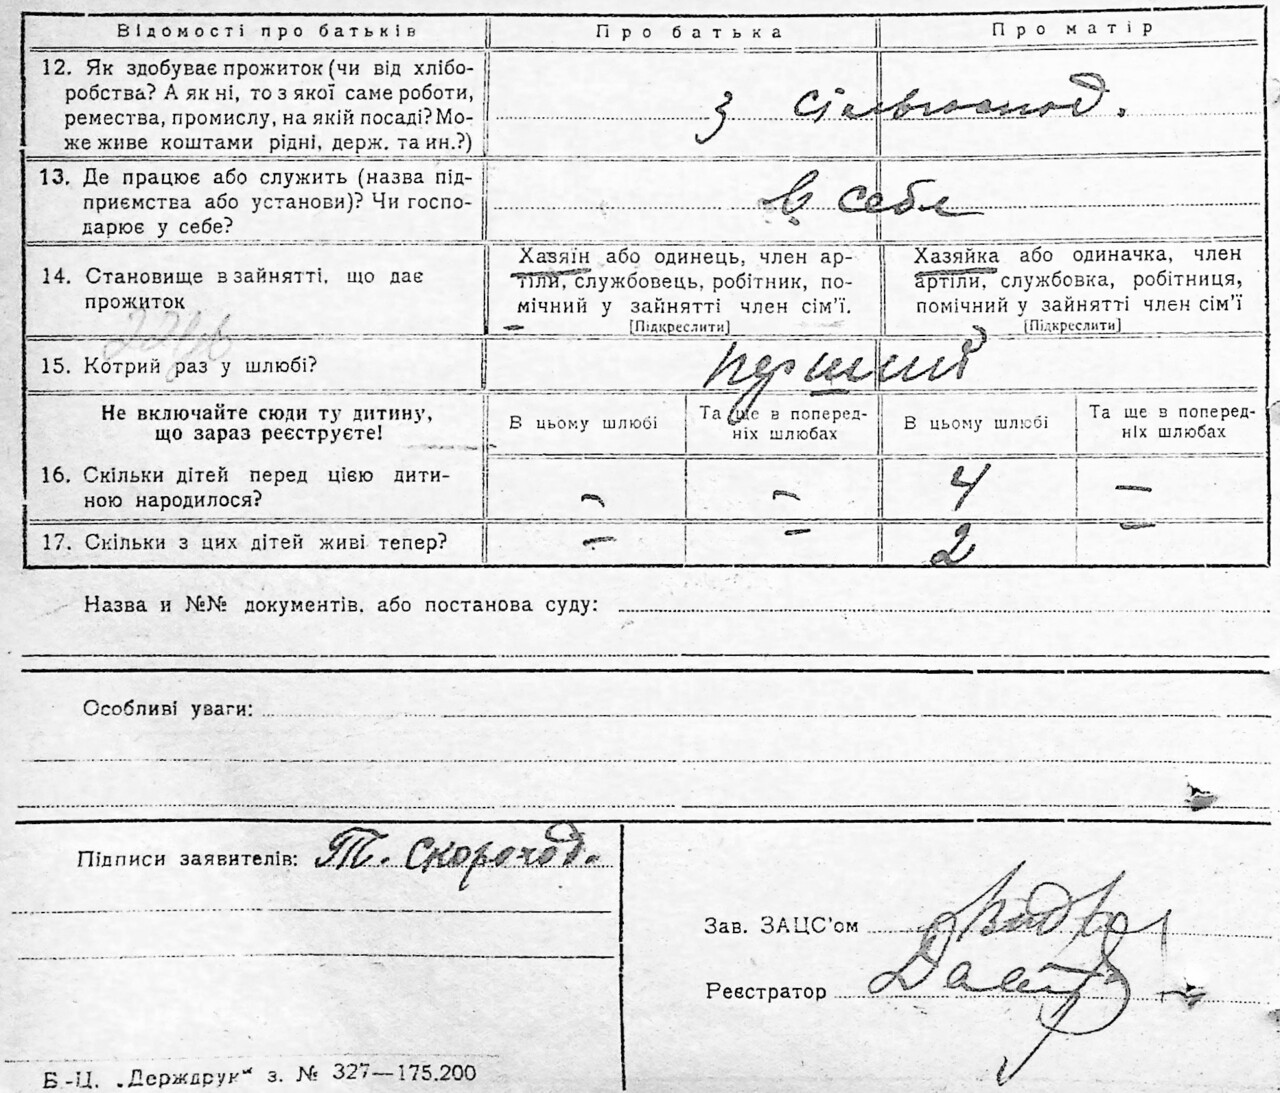 Відомості про батьків Про батька Про матір
12. Як здобуває прожиток (чи від хлібо-
робства? А як ні, то з якої саме роботи,
ремества, промислу, на якій посаді? Мо-
же живе коштами рідні, держ. та ин.?)
з сільгоспод.
13. Де працює або служить (назва під-
приємства або установи)? Чи госпо-
дарює у себе?
в себе
14. Становище в зайнятті, що дає
прожиток
Хазяїн або одинець, член ар-
тіли, службовець, робітник, по-
мічний у зайнятті член сім'ї.
[Підкреслити]
Хазяйка або одиначка, член
артіли, службовка, робітниця,
помічний у зайнятті член сім'ї
[Підкреслити]
15. Котрий раз у шлюбі?
перший
Не включайте сюди ту дитину,
що зараз реєструєте!
В цьому шлюбі
Та ще в поперед-
ніх шлюбах
В цьому шлюбі
Та ще в поперед-
ніх шлюбах
16. Скільки дітей перед цією дити-
ною народилося?
– – 4 –
17. Скільки з цих дітей живі тепер?
– – 2 –
Назва и №№ документів, або постанова суду:
Особливі уваги:
Підписи заявителів: Т. Скороход.
Зав. ЗАЦС'ом
Реєстратор
Б.-Ц. „Держдрук“ з. № 327—175.200